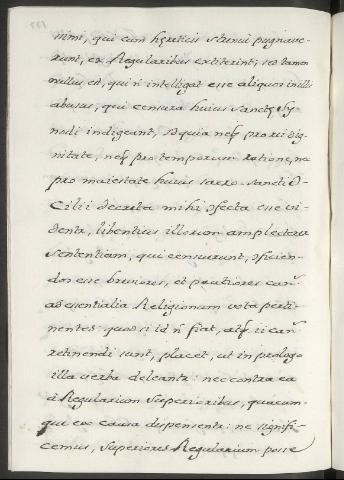 nimi, qui cum hęreticis strenui pugnaue-
runt, ex Regularibus extiterint; sed tamen
nullus est, qui ñ intelligat esse aliquos in illis
abusus, qui censura huius sanctę Sy-
nodi indigeant, sed quia neq3 pro rei dig-
nitate, neq3 pro temporum ratione, nec
pro maiestate huius sacro-sancti
Cilij decreta mihi confecta esse ui-
dentur, libentius illorum amplecterer
sententiam, qui censuerunt, conficien-
dos esse breuiores, et pauciores can.
ad essentialia Religionum uota perti-
nentes: quod si id ñ fiat, atq3 ii can.
retinendi sunt, placet, ut in prologo
illa uerba deleantur: nec contra ea
à Regularium Superioribus, quacum-
que ex causa dispensetur: ne signifi-
cemus, Superiores Regularium posse